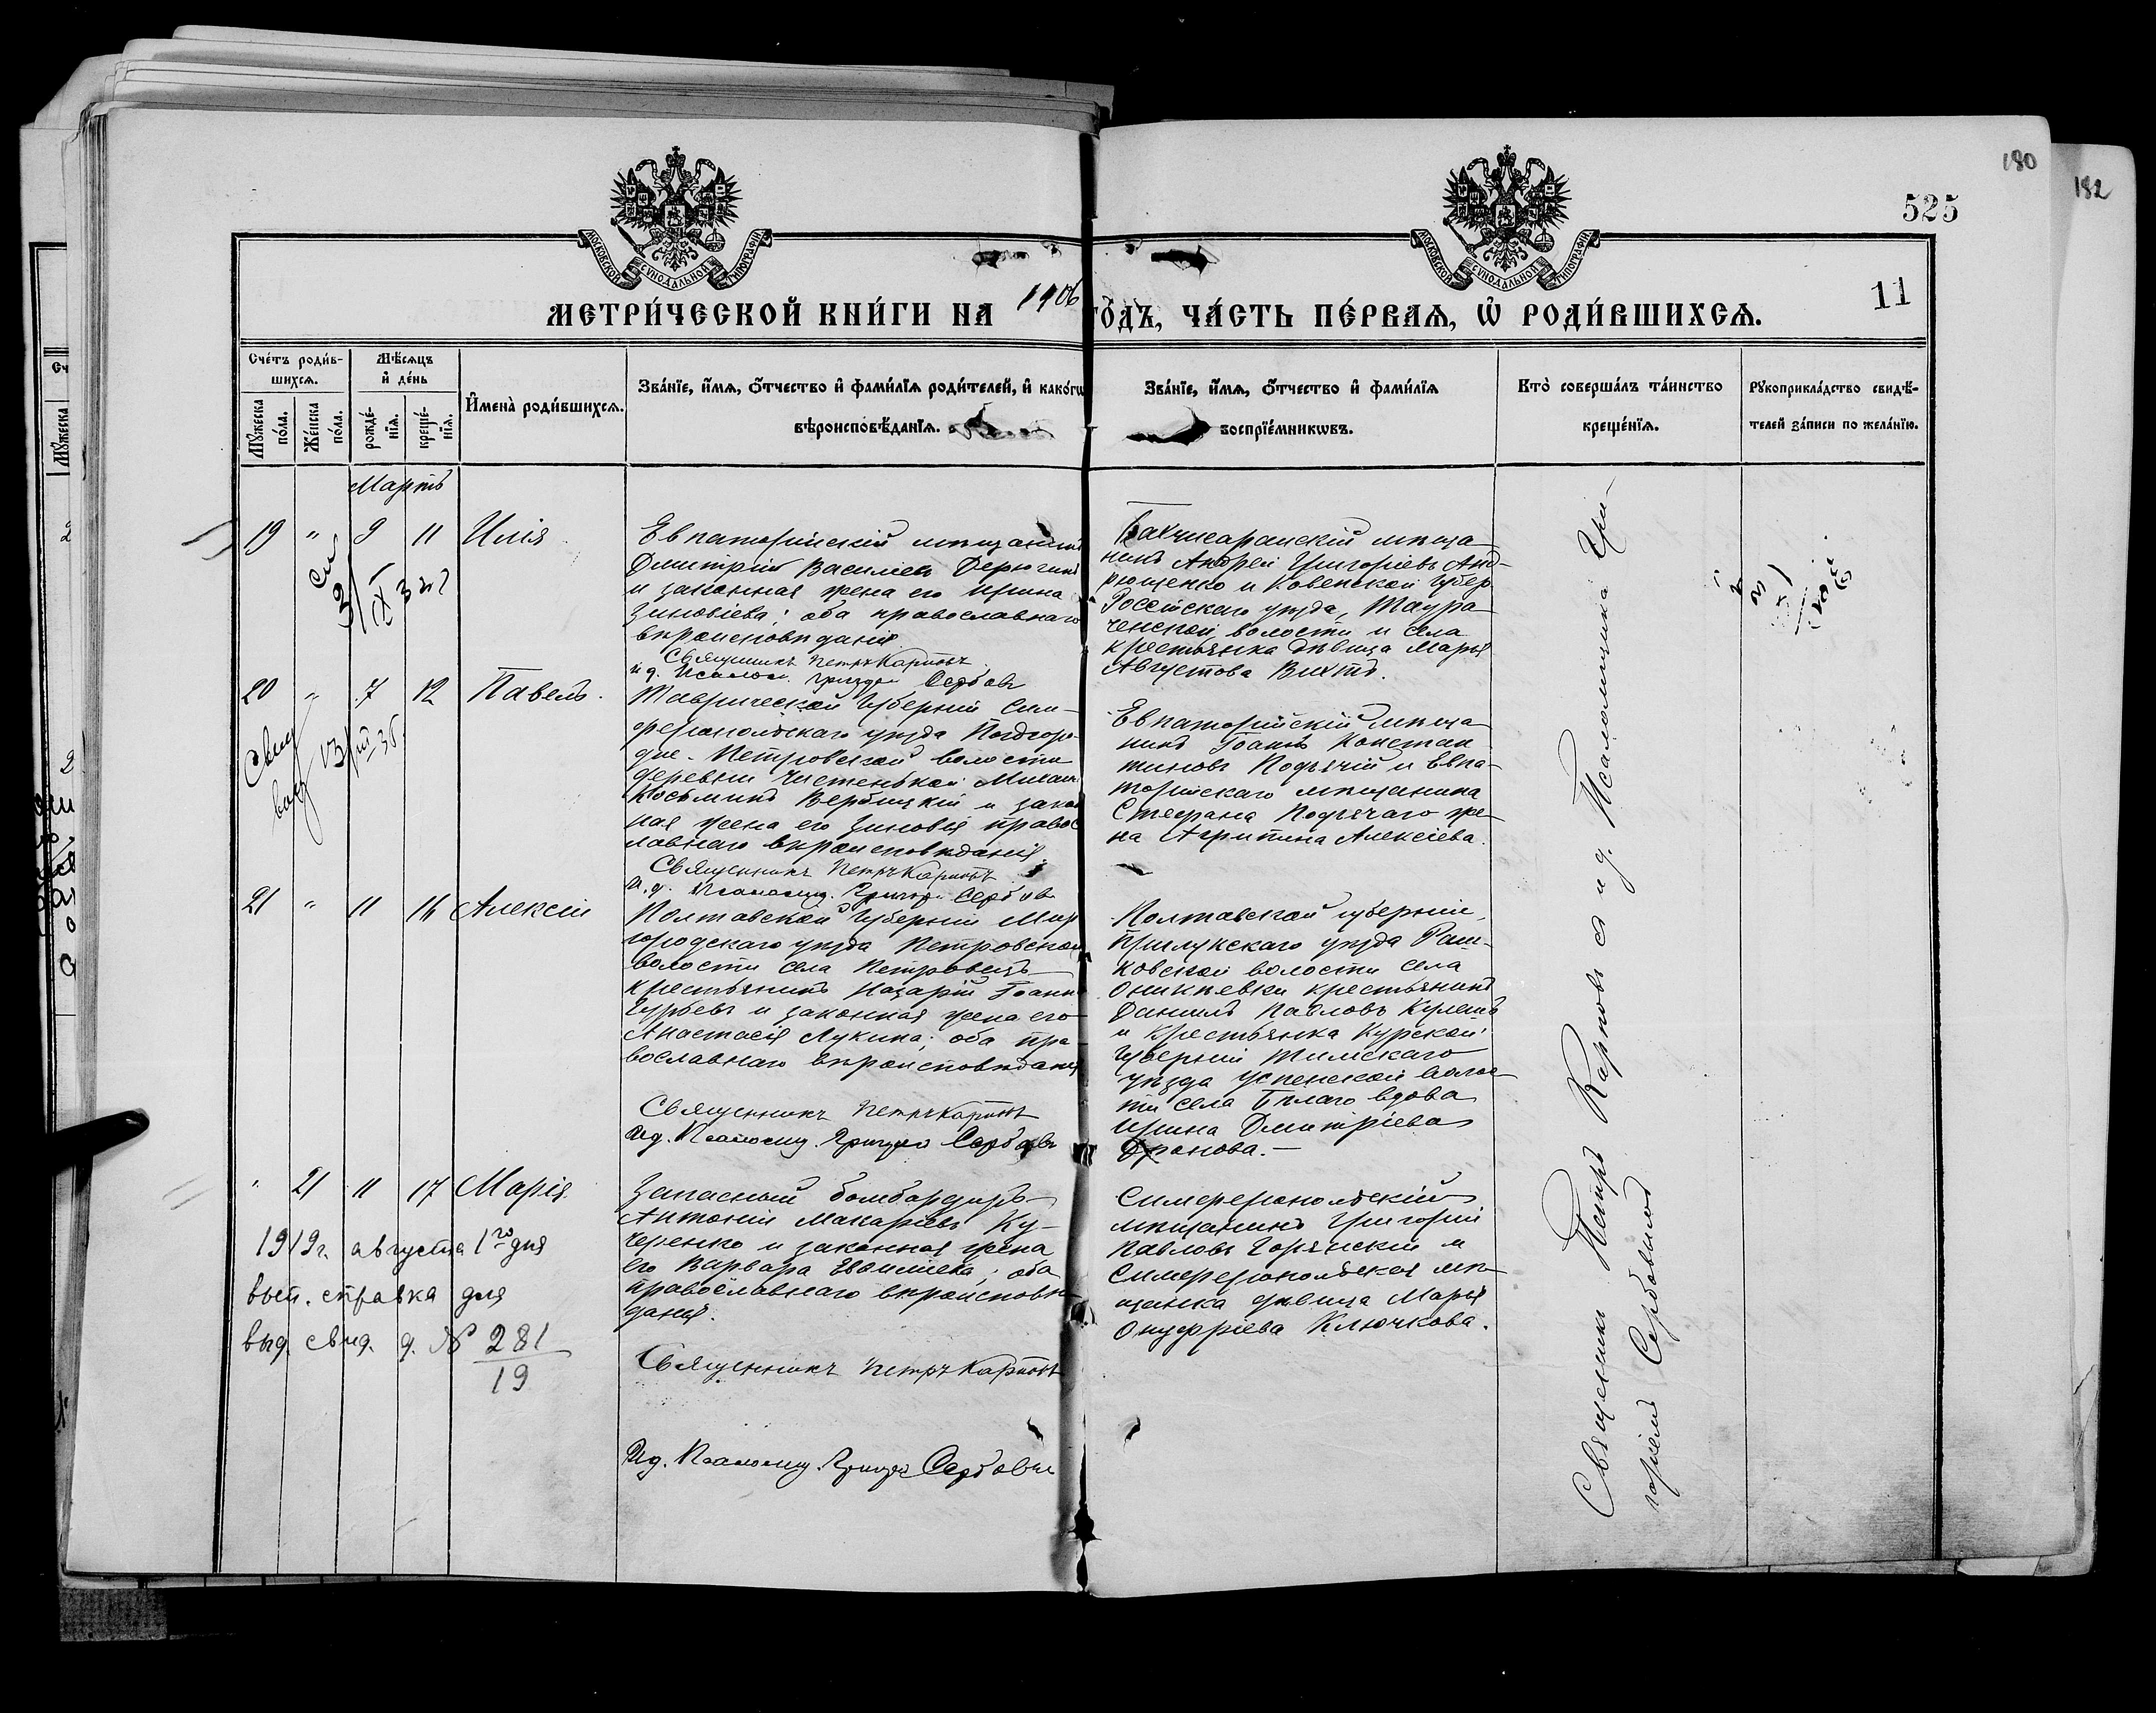 180
182
525
11
МОСКОВСКОЙ СѴНОДАЛЬНОЙ ТИПОГРАФІИ
МОСКОВСКОЙ СѴНОДАЛЬНОЙ ТИПОГРАФІИ
МЕТРИ́ЧЕСКОЙ КНИ́ГИ НА 1906 ГО́ДЪ, ЧА́СТЬ ПЕ́РВАЯ, Ѡ РОДИ́ВШИХСЯ.
Сче́тъ роди́в-
шихся.
Мꙋ́жеска по́ла.
Же́нска по́ла.
Мѣ́сяцъ
и҆ де́нь
рожде́-
нїя.
креще́-
нїя.
И҆мена̀ роди́вшихся.
Зва́нїе, и҆́мя, ѻ҆́тчество и҆ фами́лїя роди́телей, и҆ како́гѡ
вѣроисповѣ́данїя.
Зва́нїе, и҆́мя, ѻ҆́тчество и҆ фами́лїя
воспрїе́мникѡвъ.
Кто̀ соверша́лъ та́инство
креще́нїя.
Рꙋкоприкла́дство свидѣ́-
телей за́писи по жела́нїю.
Мартъ
19 " 9 11 Илія
Евпаторійскій мѣщанинъ
Дмитрій Васильевъ Дерюгинъ
и законная жена его Ирина
Зиновіева; оба православнаго
вѣроисповѣданія
Священникъ Петръ Карповъ
и.д. Псалом. Григорій Сербовъ
Бахчисарайскій мѣща-
нинъ Андрей Григорьевъ Анд-
рющенко и Ковенской губер.
Россіенскаго уѣзда, Таура-
генской волости и села
крестьянка дѣвица Марья
Августова Вихтъ.
20 " 7 12 Павелъ.
Таврической губерніи Сим-
феропольскаго уѣзда Подгоро-
дне-Петровской волости
деревни Чистенькой Михаилъ
Космино Вербицкій и закон
ная жена его Зиновія правос
лавнаго вѣроисповѣданія.
Священникъ Петръ Карповъ
и.д. Псаломщ. Григорій Сербовъ
Евпаторійскій мѣща-
нинъ Іоаннъ Констан-
тиновъ Подъячій и Евпа-
торійскаго мѣщанина
Стефана Подъячаго же-
на Агрипина Алексіева.
21 " 11 16 Алексій
Полтавской губерніи Мир
городскаго уѣзда Петровской
волости села Петровецъ
крестьянинъ Назарій Іоанн
Гурьевъ и законная жена его
Анастасія Лукина; оба пра
вославнаго вѣроисповѣданія
Священникъ Петръ Карповъ
И.д. Псаломщ. Григорій Сербовъ
Полтавской губерніи,
Прилукскаго уѣзда Раш-
ковской волости села
Оникіевки крестьянинъ
Даніилъ Павловъ Кулешъ
и крестьянка Курской
губерніи Тимскаго
уѣзда Успенской волос-
ти села Бѣлаго вдова
Ирина Дмитріева
Дронова.—
" 21 11 17 Марія.
Запасный бомбардиръ
Антоній Макаріевъ Ку-
черенко и законная жена
его Варвара; оба
православнаго вѣроисповѣ-
данія.
Священникъ Петръ Карповъ
И.д. Псаломщ. Григорій Сербовъ
Симферопольскій
мѣщанинъ Григорій
Павловъ Горянскій и
Симферопольская мѣ-
щанка дѣвица Марья
Онуфріева Ключкова.
1919 г. августа 1го дня
вып. справка для
выд. свид. д. № 281
19
Священникъ Петръ Карповъ и и.д. Псаломщика Гри-
горій Сербовъ